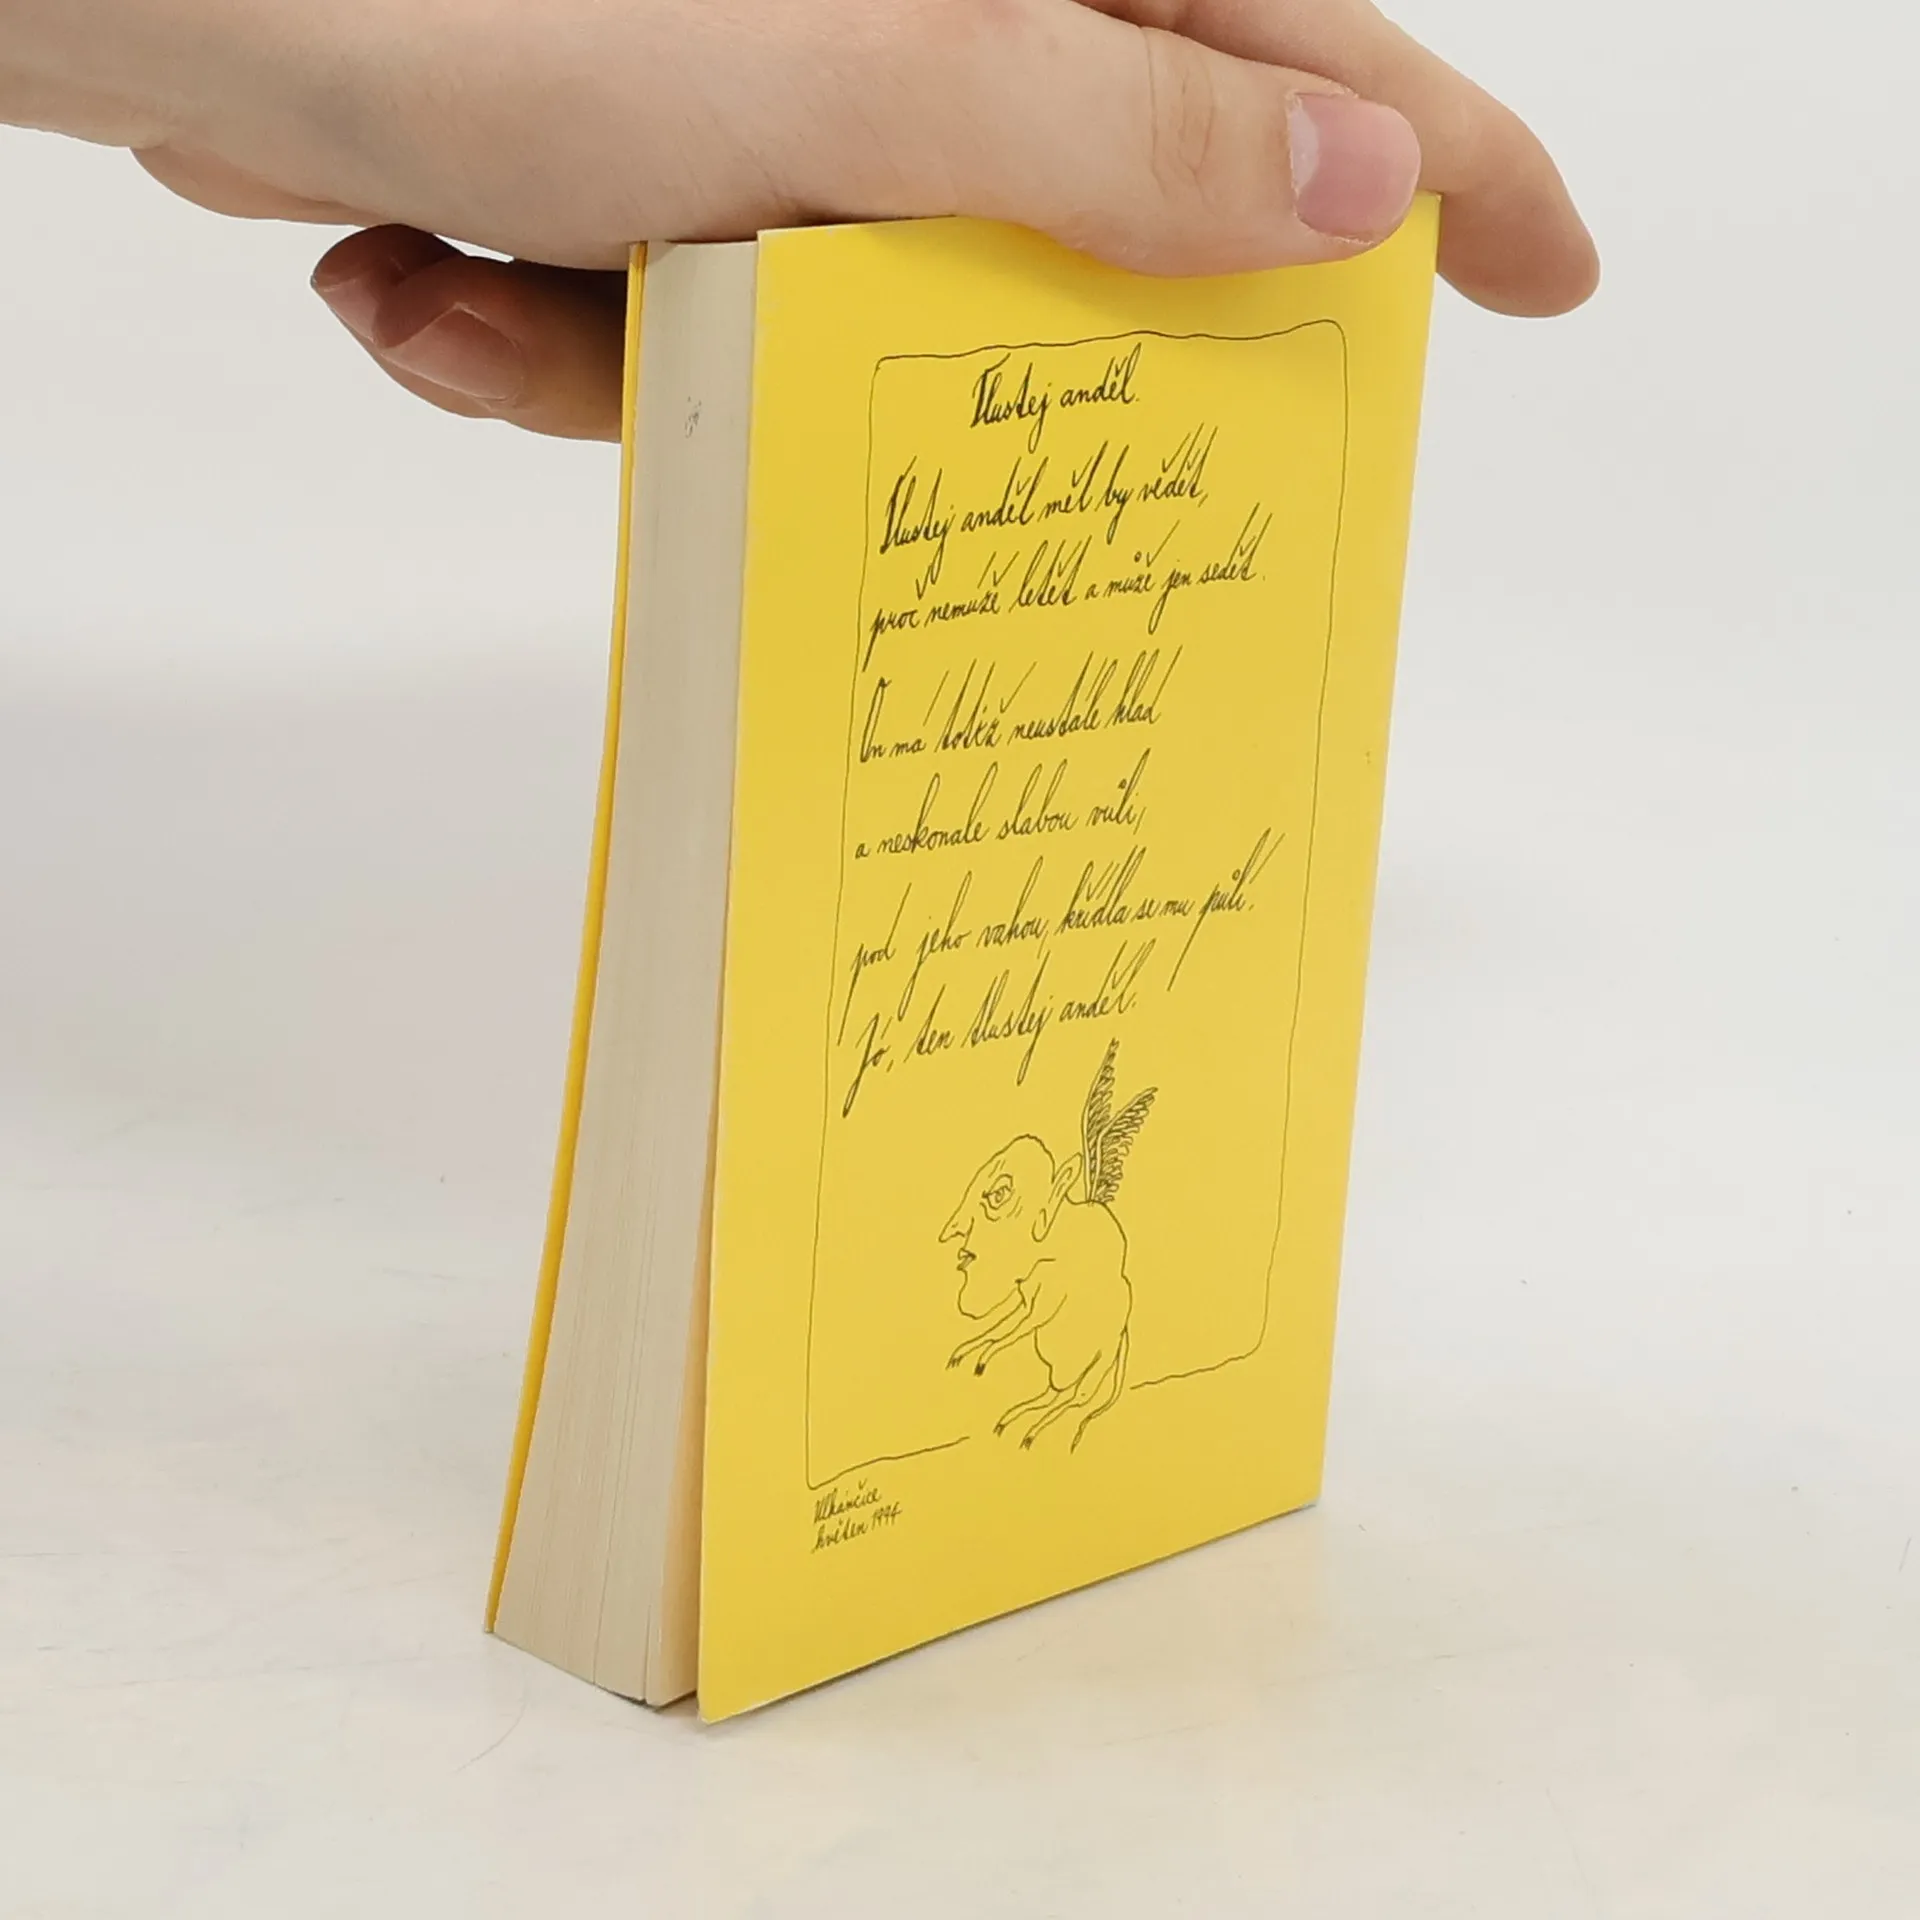 Tlustej anděl.
Tlustej anděl měl by vědět,
proč nemůže letět a může jen sedět.
On má totiž neustále hlad
a neskonale slabou vůli,
pod jeho vahou, křídla se mu půlí.
Jó, ten tlustej anděl.
Vlkančice
květen 1994